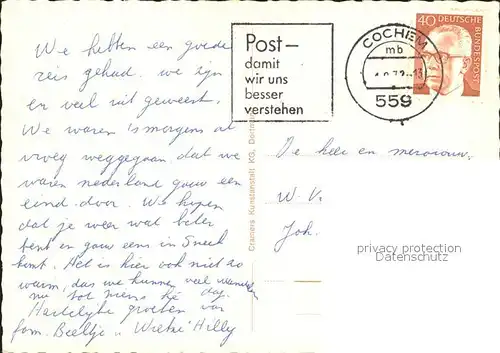 We hebben een goede
reis gehad. we zijn
er veel uit geweest.
We waren 's morgens al
vroeg weggegaan dat we
waren nederland gouw een
eind door. We hopen
dat je weer wat beter
bent en gouw eens in Sneek
komt. Het is hier ook niet zo
warm, das we kunnen veel wandelen
nu tot ziens hé dag.
Hartelijke groeten van
fam. Beeltje
Wietze Hilly
Post –
damit
wir uns
besser
verstehen
COCHEM
mb
559
40 DEUTSCHE
BUNDESPOST
Cramers Kunstanstalt KG,
De heer en mevrouw
W. V.
Joh.
privacy protection
Datenschutz